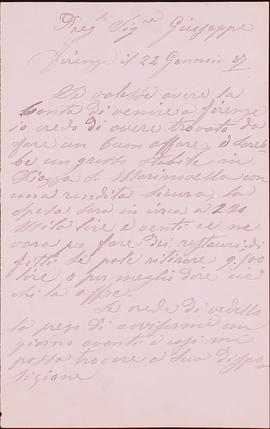 Preg. Sig.re Giuseppe
Firenze il 22 Gennaio 87
Se volesse avere la
bontà di venire a Firenze
io credo di avere trovato da
fare un buon affare, è sareb
be un grosso stabile in
Piazza S. M. Novella con
una rendita sicura, la
spesa sarà in circa a 220
Mila lire e vento ce ne
vorà per fare dei restauri: di
fitto se pole ritirare 9.500
lire, o per meglio dire cie
chi la offre.
Se crede di vederlo
la prego di avvisarmi un
giorno avanti e così mi
possa trovare a sua dispo
sizione